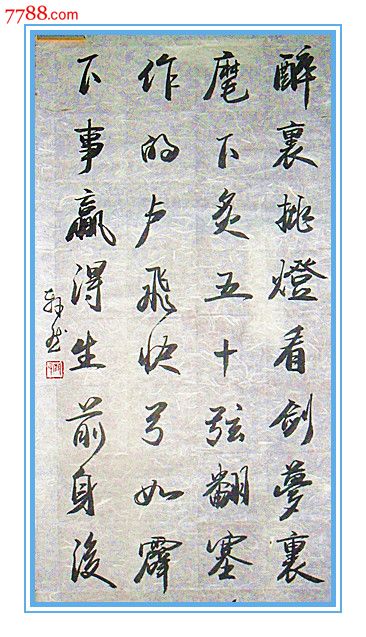 7788.com
醉裏挑燈看剑夢裏
麾下炙五十弦翻塞
作的卢飛快弓如霹
下事贏得生前身後